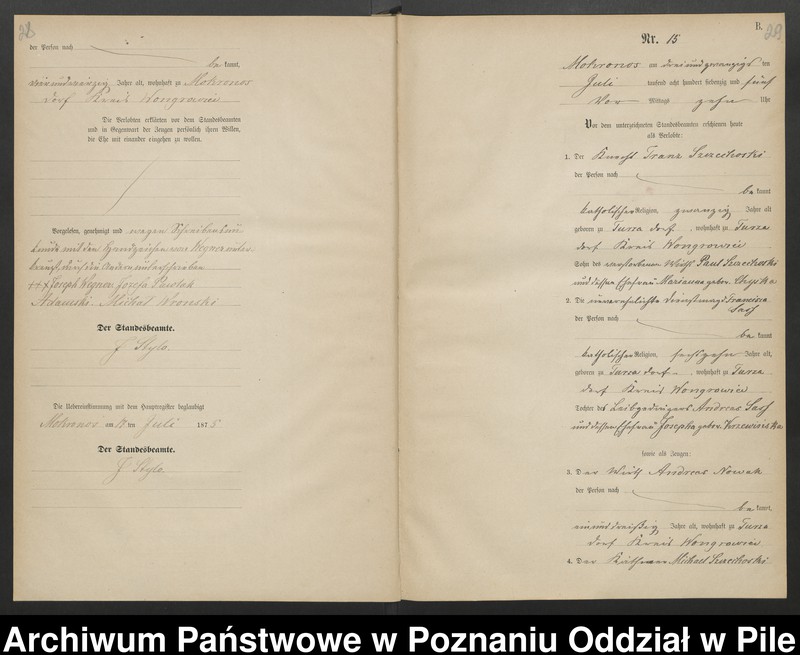 28
der Person nach
be kannt,
vierundvierzig Jahre alt, wohnhaft zu Mokronos
Dorf Kreis Wongrowiec
Die Verlobten erklärten vor dem Standesbeamten
und in Gegenwart der Zeugen persönlich ihren Willen,
die Ehe mit einander eingehen zu wollen.
Vorgelesen, genehmigt und wegen Schreibensun-
kunde mit den Handzeichen von Wegner unter-
kreuzt, durch die Anderen unterschrieben
+++ Joseph Wegner Josefa Pawlak
Adamski. Michał Wronski
Der Standesbeamte.
J Stylo.
Die Uebereinstimmung mit dem Hauptregister beglaubigt
Mokronos am ten Juli 1875
Der Standesbeamte.
J Stylo.
B.
29
Nr. 15
Mokronos am dreiundzwanzigs ten
Juli tausend acht hundert siebenzig und fünf
Vor Mittags zehn Uhr
Vor dem unterzeichneten Standesbeamten erschienen heute
als Verlobte:
1. Der Knecht Franz Szzechoski
der Person nach
be kannt
katholischer Religion, zwanzig Jahre alt
geboren zu Turza dorf, wohnhaft zu Turza
dorf Kreis Wongrowiec
Sohn des verstorbenen Wirth Paul Szzechoski
und dessen Ehefrau Marianna gebor.
2. Die unverehelichte Dienstmagd Francisca
Sass
der Person nach
be kannt
katholischer Religion, sechszehn Jahre alt,
geboren zu Turza dorf, wohnhaft zu Turza
dorf Kreis Wongrowiec
Tochter des Leibgedingers Andreas Sass
und dessen Ehefrau Josepha gebor.
sowie als Zeugen:
3. Der Wirth Andreas Nowak
der Person nach
be kannt,
einunddreißig Jahre alt, wohnhaft zu Turza
dorf Kreis Wongrowiec
4. Der Käthner Michael Szzechoski
Archiwum Państwowe w Poznaniu Oddział w Pile